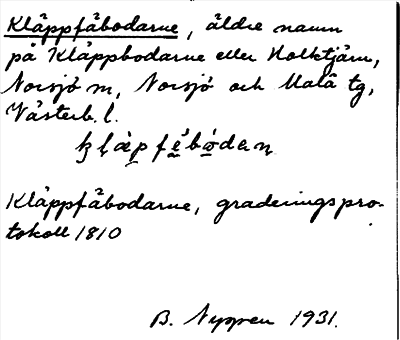 Kläppfäbodarne, äldre namn
på Kläppbodarne eller Holktjärn,
Norsjö m, Norsjö och Malå tg,
Västerb. l.
Kläppfäbodarne, graderingspro-
tokoll 1810
B. Nyppen 1931.